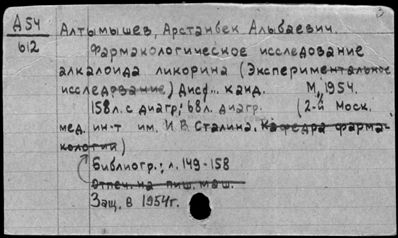 Д54
612
Алтымышев, Арстанбек Алыбаевич.
Фармакологическое исследование
алкалоида ликорина (Экспериментальное
исследование) Дисс... канд. М., 1954.
158л. с диагр; 68л. диагр. (2-й Моск.
мед. ин-т им. И.В. Сталина. Кафедра фарма-
кологии)
Библиогр.; л. 149-158
Отпеч. на пиш. маш.
Защ. в 1954г.